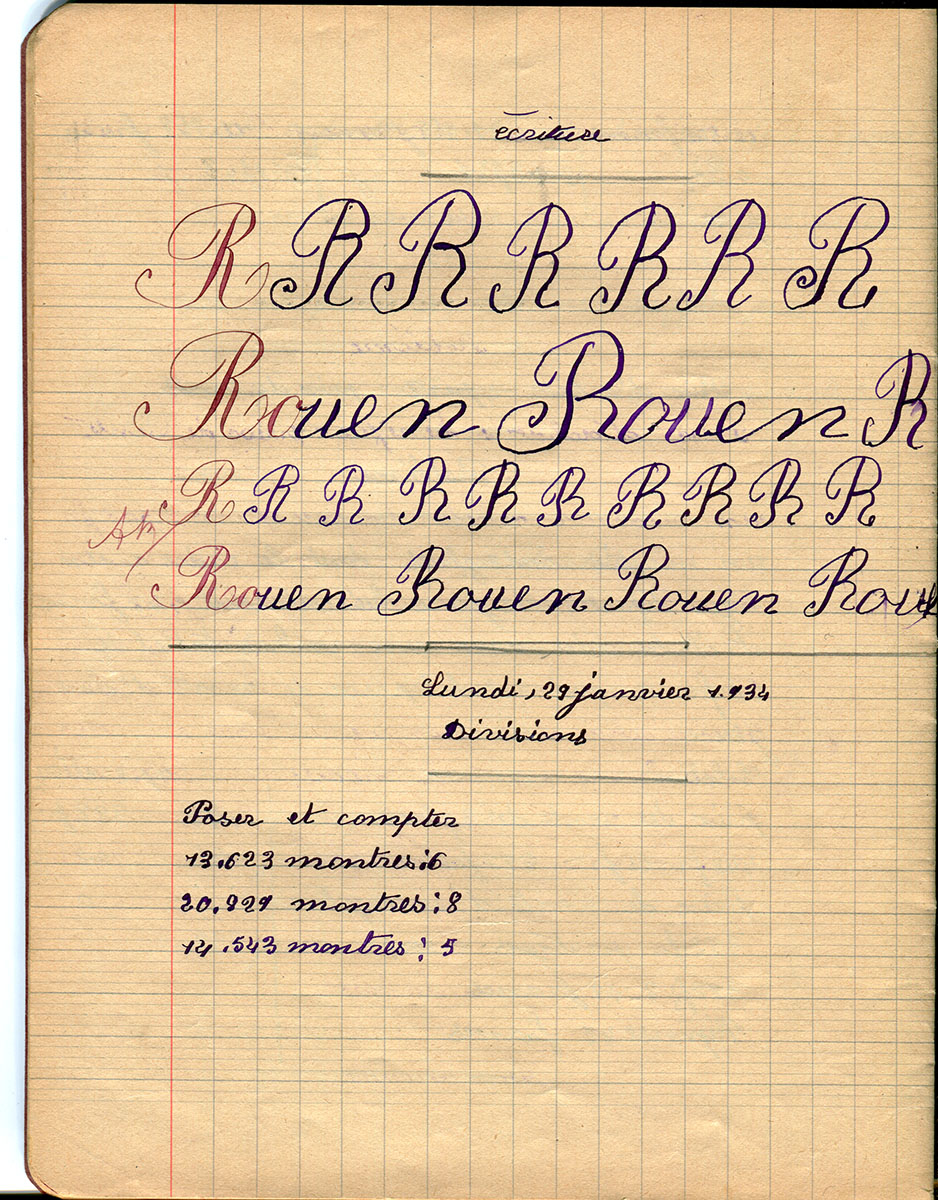 écriture
R R R R R R R
Rouen Rouen R
R R R R R R R R R R
Rouen Rouen Rouen Rou
Lundi, 29 janvier 1.934
Divisions
Poser et compter
13.623 montres:6
20.921 montres:8
14.543 montres: 5